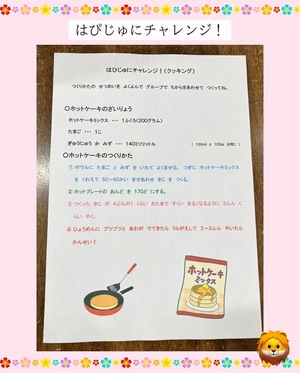 はぴじゅにチャレンジ！
はぴじゅにチャレンジ！（クッキング）
つくりかたの せつめいを よくよんで グループで ちからをあわせて つくってね。
〇ホットケーキのざいりょう
ホットケーキミックス ・・・ 1ふくろ（200グラム）
たまご ・・・ 1こ
ぎゅうにゅう か みず ・・・ 140ミリリットル
〇ホットケーキのつくりかた
① ボウルに たまご と みず を いれて よくまぜる。 つぎに ホットケーキミックス
を くわえて 50～60かい まぜあわせ きじ を つくる。
② ホットプレートの おんど を 170ど にする。
③ つくった きじ の 4ぶんの1 くらい おたまで すくい まるくなるように 3ふん く
らい やく。
④ ひょうめんに プツプツと あわが でてきたら うらがえして 2～3ふん やいたら
かんせい！
ホットケーキ
ミックス